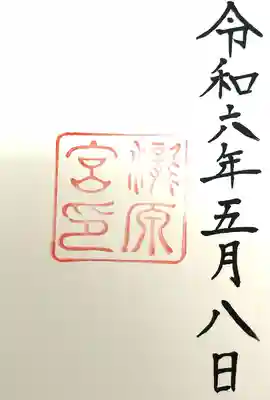 令和六年五月八日
瀧原
宮印